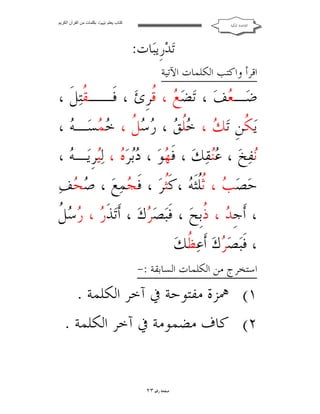 كتاب يعلم تبيوت بكلمات من القرآن الكريم
القاعدة المكية
تَدْرِيبَات:
اقرأ واكتب الكلمات الآتية
ضَـــعُفَ ، تَضَعُ ، قُرِئَ ، فَـــــقُتِلَ ،
يَكُنِ تَكُ ، خُلُقُ ، رُسُلُ ، خُمُسَـــهُ ،
نُفِخَ ، عُنُقِكَ ، فَهُوَ ، دُبُرَهُ ، لِيُرِيَـــهُ ،
حَصَبُ ، ثُلُثَهُ ،كَثُرَ ، فَجُمِعَ ، صُحُفِ
، أَجِدُ ، ذُبِحَ ، فَبَصَرُكَ ، أَتَذَرُ ، رُسُلُ
، فَبَصَرُكَ أَعِظُكَ
استخرج من الكلمات السابقة :-
١) همزة مفتوحة في آخر الكلمة .
٢) كاف مضمومة في آخر الكلمة .
صفحة رقم ٢٣